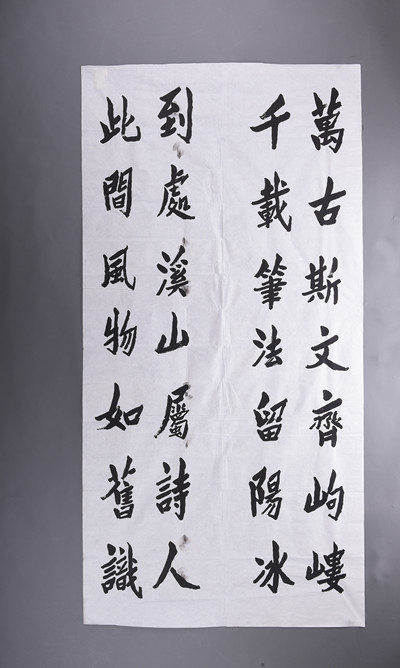 萬古斯文齊岣嶁
千載筆法留陽冰
到處溪山屬詩人
此間風物如舊識